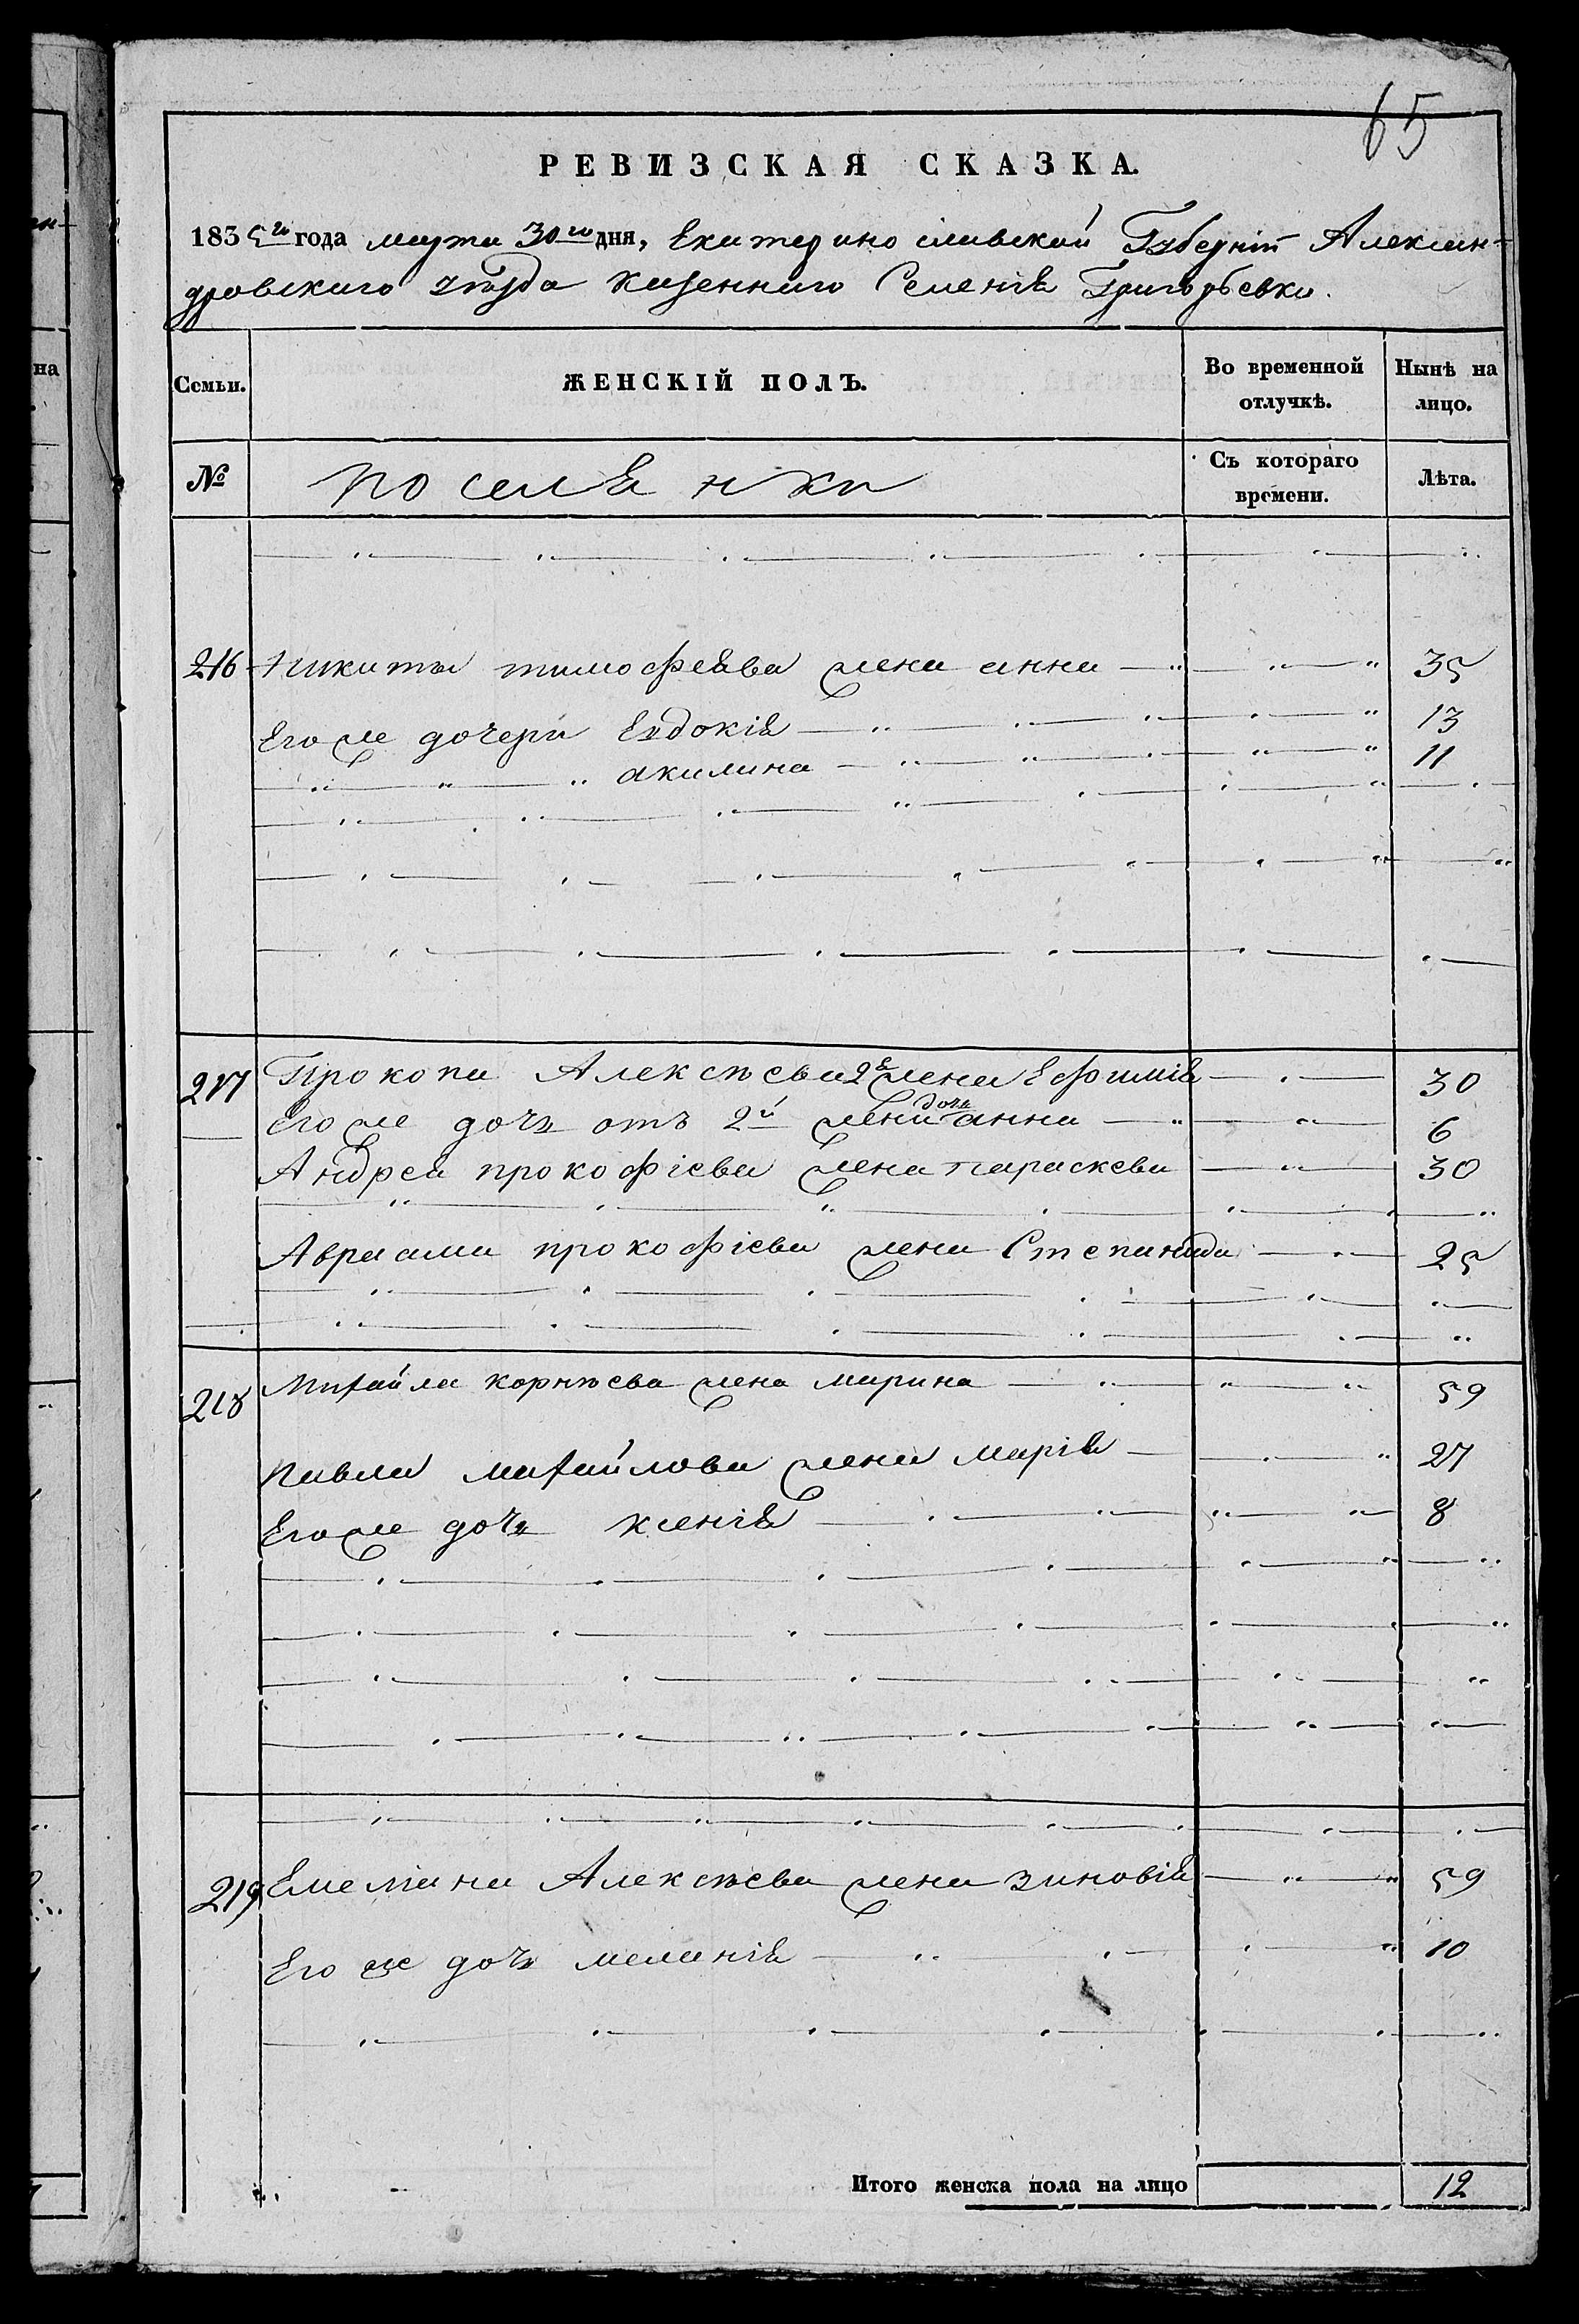 65
РЕВИЗСКАЯ СКАЗКА.
1835го года марта 30го дня, Екатеринославской Губерніи Алексан-
дровского уѣзда казенного Селенія Григорьевки.
Семьи. ЖЕНСКІЙ ПОЛЪ. Во временной отлучкѣ. Нынѣ на лицо.
№ поселянки Съ котораго времени. Лѣта.
216 Никиты тимофеява жена анна 35
Его же дочери Евдокія 13
" " " акилина 11
217 Прокопа Алексѣева 2я жена Ефимія 30
Его же дочь отъ 2й жены дочь анна 6
Андрея прокофіева жена параскева 30
Авраама прокофіева жена Степанида 25
218 Михайла корнѣева жена марина 59
Павла михайлова жена марія 27
Его же дочь ксенія 8
219 Емеляна Алексѣева жена зиновія 59
Его же дочь меланія 10
Итого женска пола на лицо 12